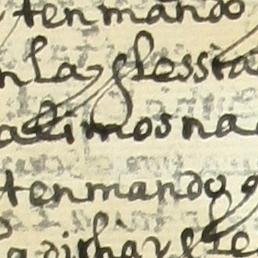 ytenmando
nla yglessia
alimosna
ytenmando q